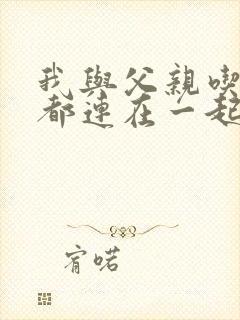 我與父親喫
都連在一起
宥喏